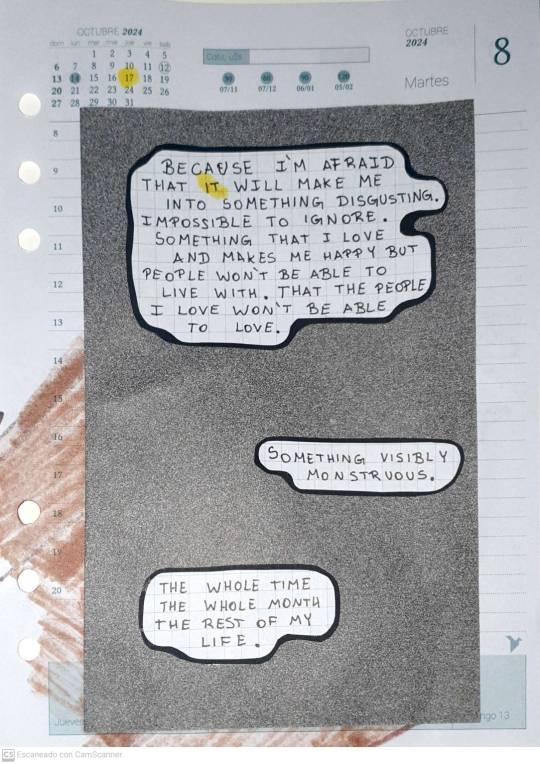 OCTUBRE 2024
dom lun mar mie jue vie sab
1 2 3 4 5
6 7 8 9 10 11 12
13 14 15 16 17 18 19
20 21 22 23 24 25 26
27 28 29 30 31
30 60 90 120
07/11 07/12 06/01 05/02
OCTUBRE
2024
8
Martes
8
9
10
11
12
13
14
15
16
17
18
19
20
BECAUSE I'M AFRAID
THAT IT WILL MAKE ME
INTO SOMETHING DISGUSTING.
IMPOSSIBLE TO IGNORE.
SOMETHING THAT I LOVE
AND MAKES ME HAPPY BUT
PEOPLE WON'T BE ABLE TO
LIVE WITH. THAT THE PEOPLE
I LOVE WON'T BE ABLE
TO LOVE.
SOMETHING VISIBLY
MONSTRUOUS.
THE WHOLE TIME
THE WHOLE MONTH
THE REST OF MY
LIFE.
Jueves
ngo 13
CS Escaneado con CamScanner